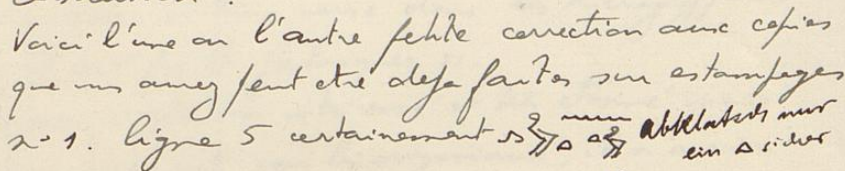 Voici l'une ou l'autre petite correction aux copies
que vous avez peut etre deja faites sur estampages
no 1. ligne 5 certainement abklatsch nur
ein Δ sicher